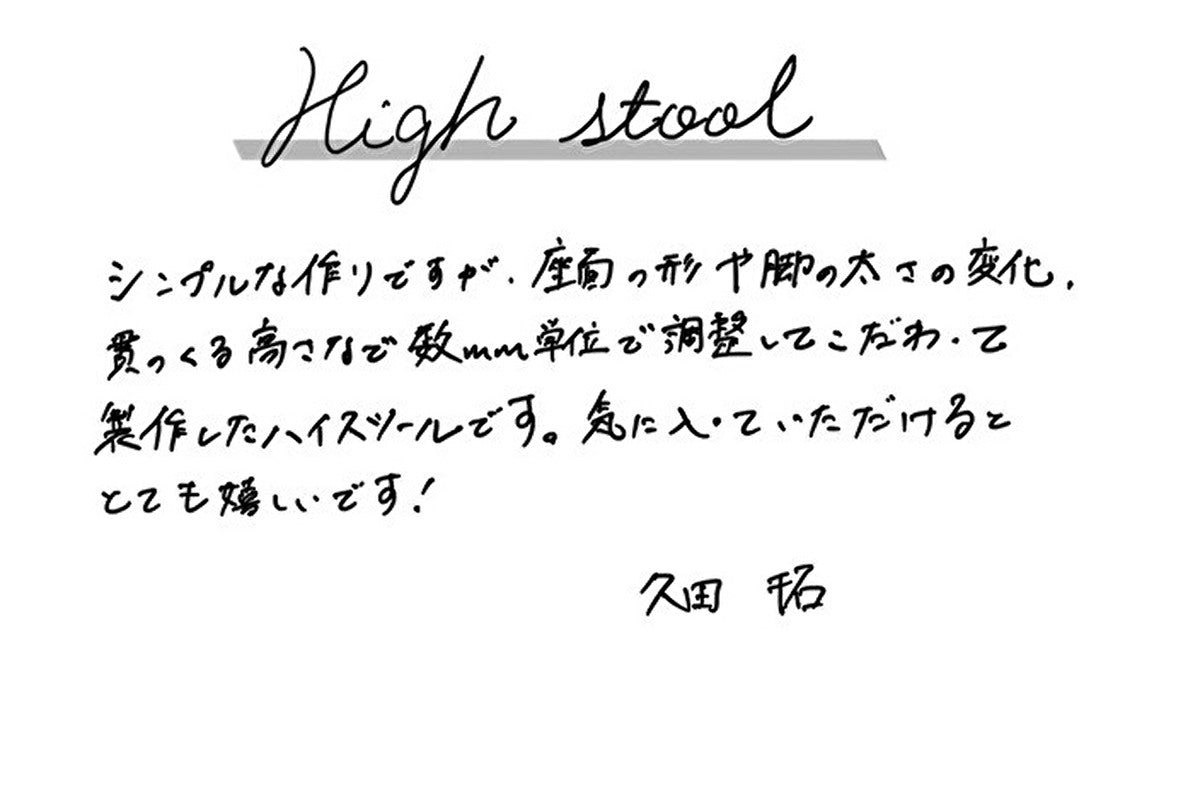 High stool
シンプルな作りですが、座面の形や脚の太さの変化、
貫のくる高さなど数mm単位で調整してこだわって
製作したハイスツールです。気に入っていただけると
とても嬉しいです!
久田 拓